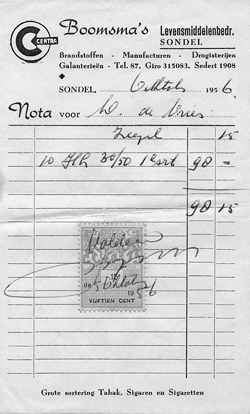 C CENTRA
Boomsma's Levensmiddelenbedr.
SONDEL
Brandstoffen - Manufacturen - Drogisterijen
Galanterieën - Tel. 87, Giro 315083, Sedert 1908
SONDEL, 1956.
Nota voor W. de Vries
Zegel 15
10 Hl 30/50 1e srt 98 -
98 15
Voldaan
de 5 Oktob
1956
VIJFTIEN CENT
Grote sortering Tabak, Sigaren en Sigaretten